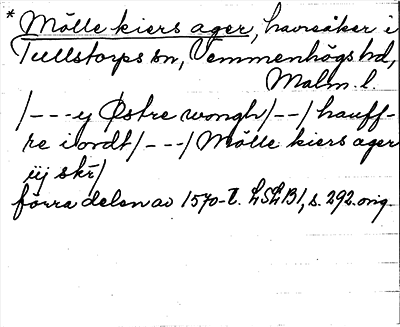 * Mölle kiers ager, havreåker i
Tullstorps sn, Vemmenhögs hd,
Malm. l.
/---y Østre wongh/--/hauff-
re i ordt/---/Mölle kiers ager
iij skr/
förra delen av 1570-t. LSLB1, s. 292. orig.